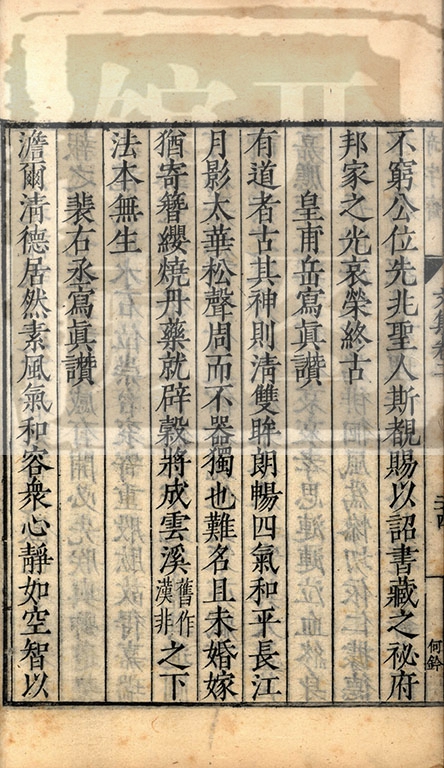 不窮公位先兆聖人斯覩賜以詔書藏之祕府
邦家之光哀榮終古
皇甫岳寫眞讚
有道者古其神則清雙眸朗暢四氣和平長江
月影太華松聲周而不器獨也難名且未婚嫁
猶寄簪纓燒丹藥就辟穀將成雲溪舊作漢非之下
法本無生
裴右丞寫眞讚
澹爾清德居然素風氣和容衆心靜如空智以
何鈴